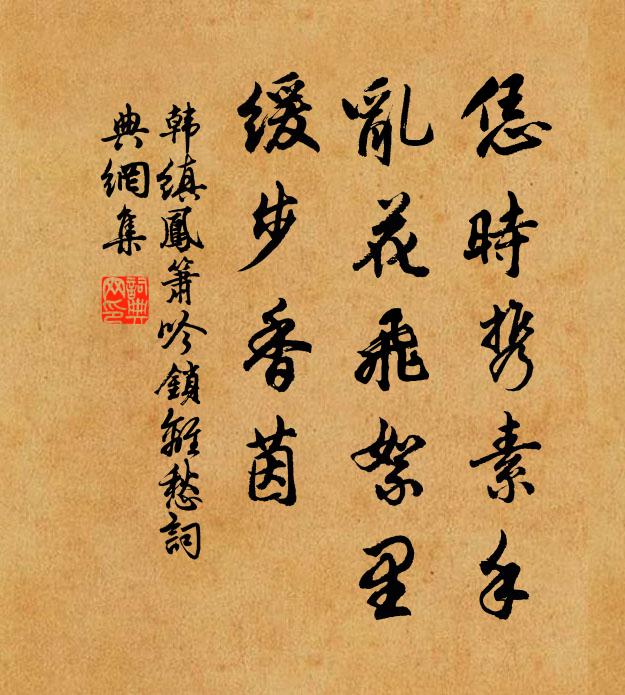 恁時携素手
亂花飛絮里
緩步香茵
韩縝鳳簫吟鎖離愁詞
典網集
詞典網印